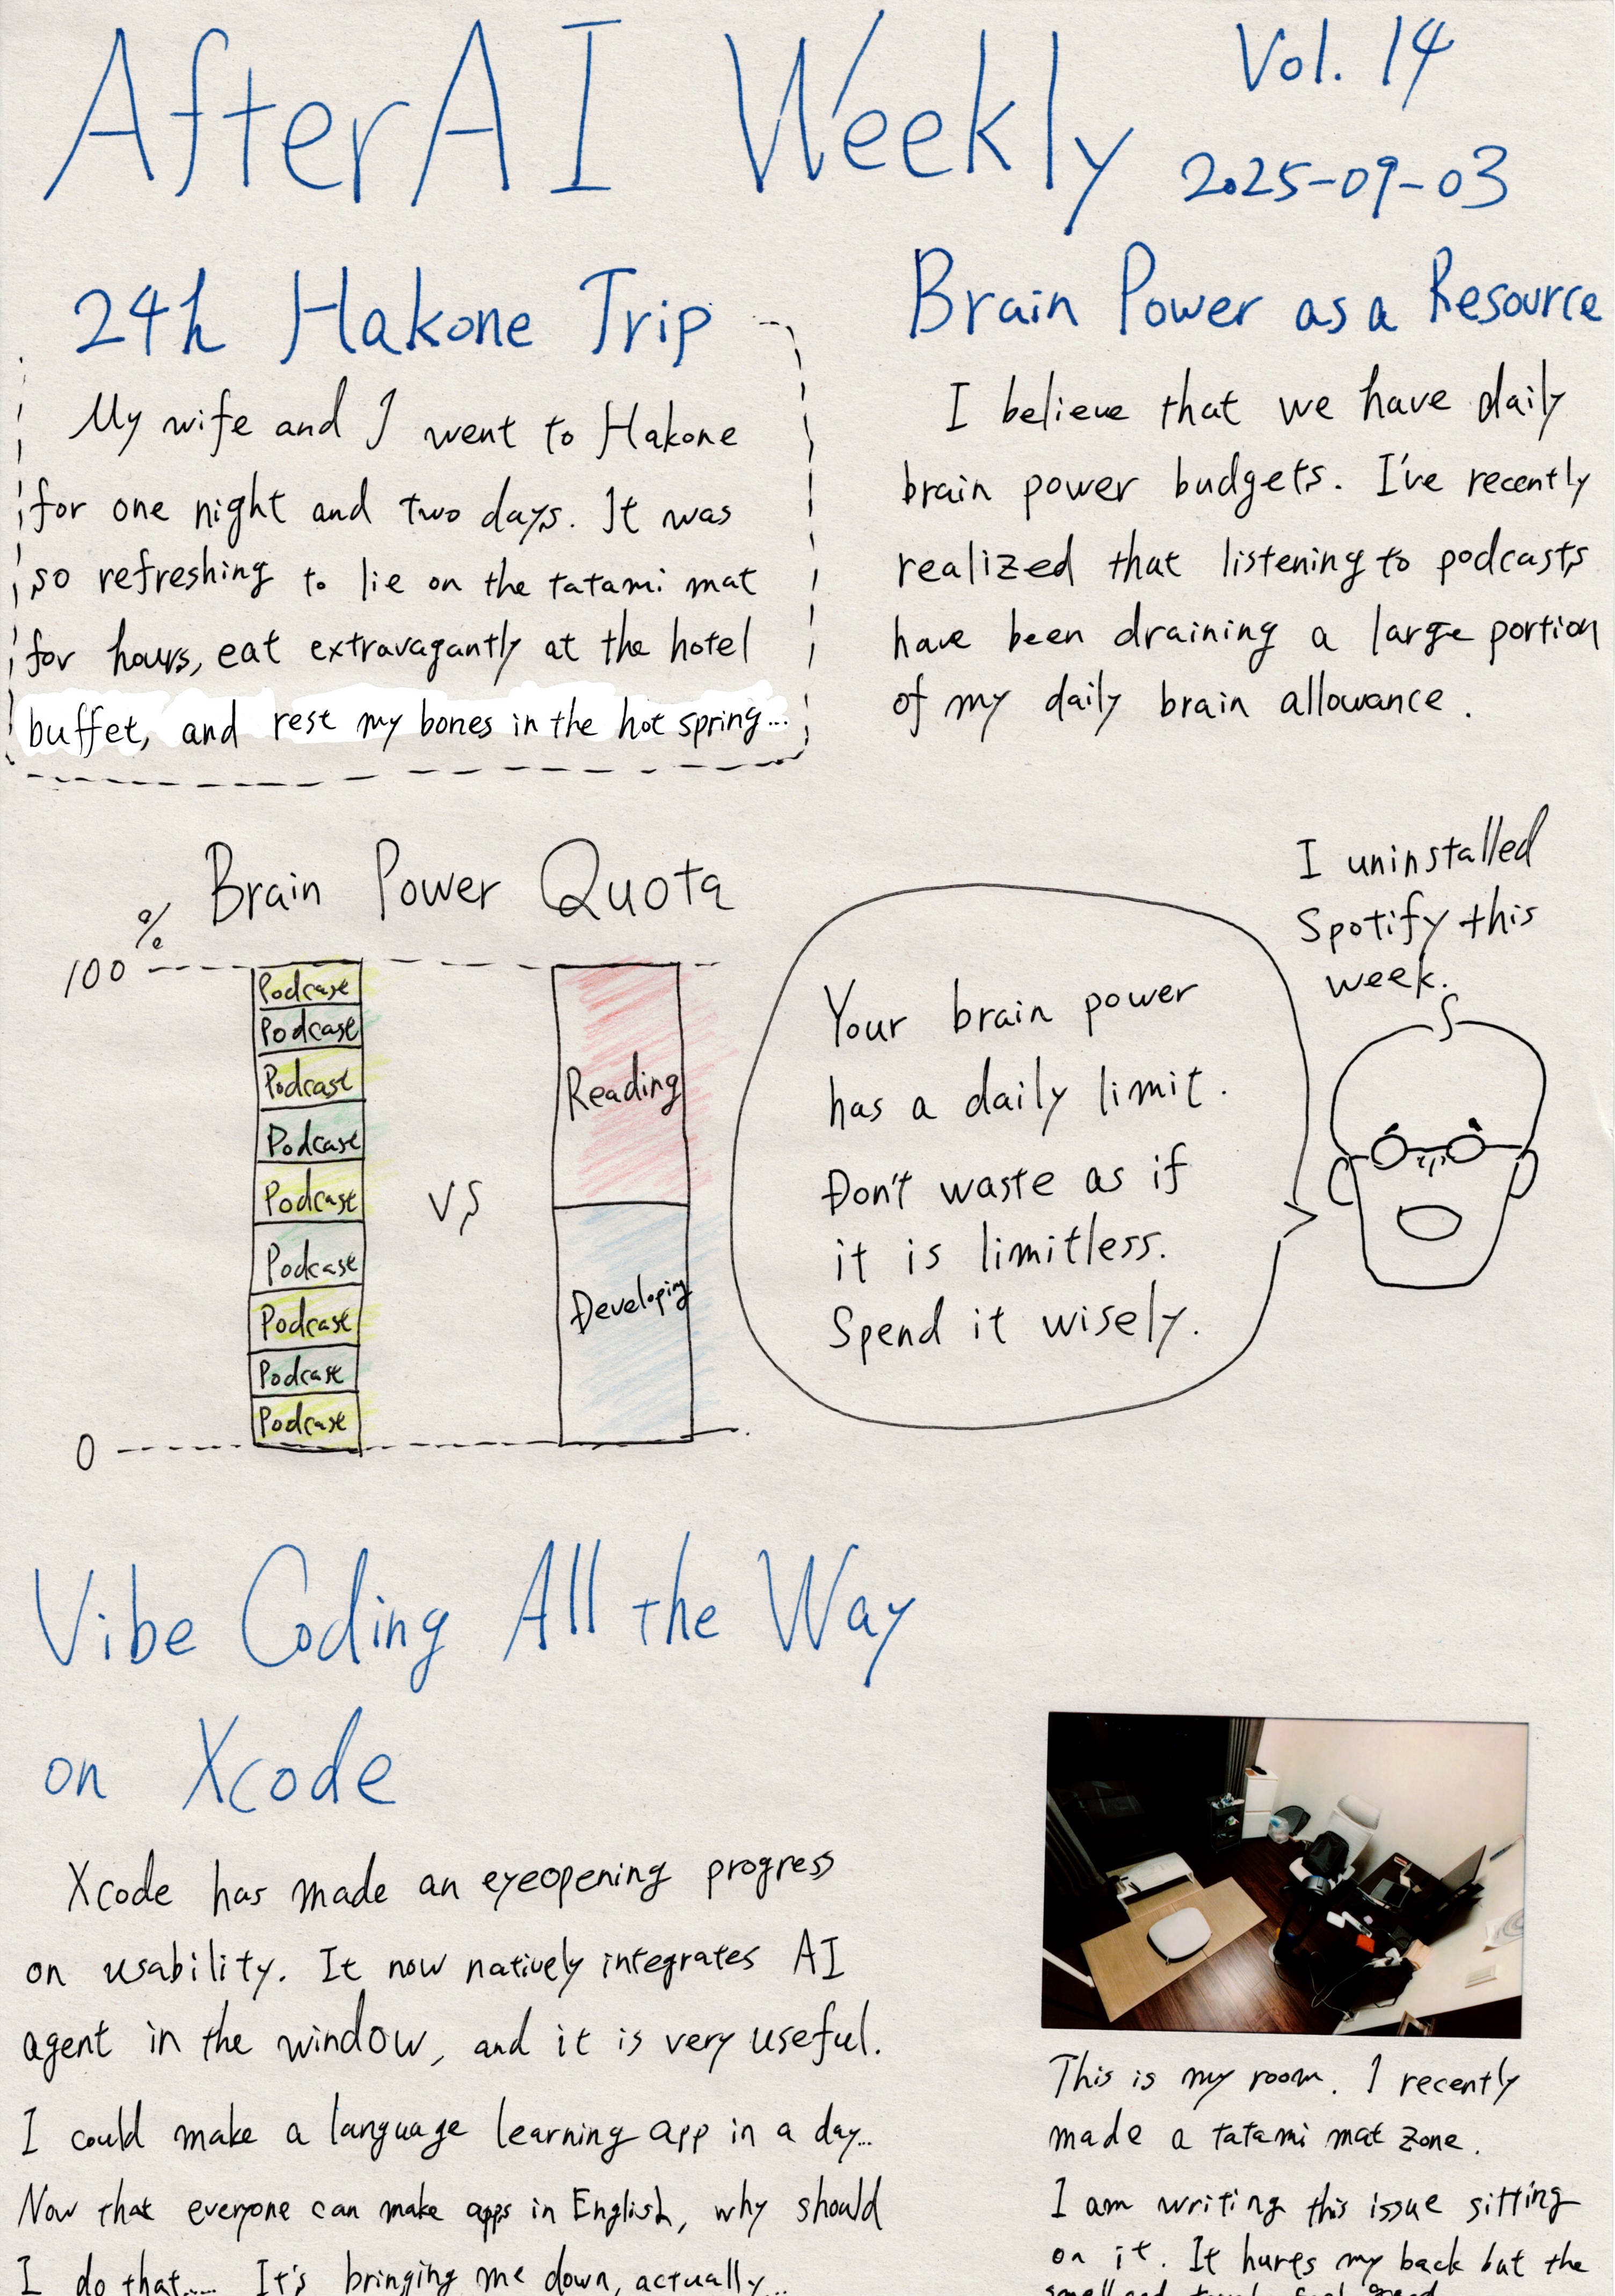 AfterAI Weekly
Vol. 14
2025-09-03
24h Hakone Trip
My wife and I went to Hakone
for one night and two days. It was
so refreshing to lie on the tatami mat
for hours, eat extravagantly at the hotel
buffet, and rest my bones in the hot spring...
Brain Power as a Resource
I believe that we have daily
brain power budgets. I've recently
realized that listening to podcasts
have been draining a large portion
of my daily brain allowance.
Brain Power Quota
%
100
Podcast
Podcast
Podcast
Podcast
Podcast
Podcast
Podcast
Podcast
Podcast
0
VS
Reading
Developing
Your brain power
has a daily limit.
Don't waste as if
it is limitless.
Spend it wisely.
I uninstalled
Spotify this
week.
Vibe Coding All the Way
on Xcode
Xcode has made an eyeopening progress
on usability. It now natively integrates AI
agent in the window, and it is very useful.
I could make a language learning app in a day...
Now that everyone can make apps in English, why should
I do that..... It's bringing me down, actually...
This is my room. I recently
made a tatami mat zone.
I am writing this issue sitting
on it. It hurts my back but the
smell and touch feel good